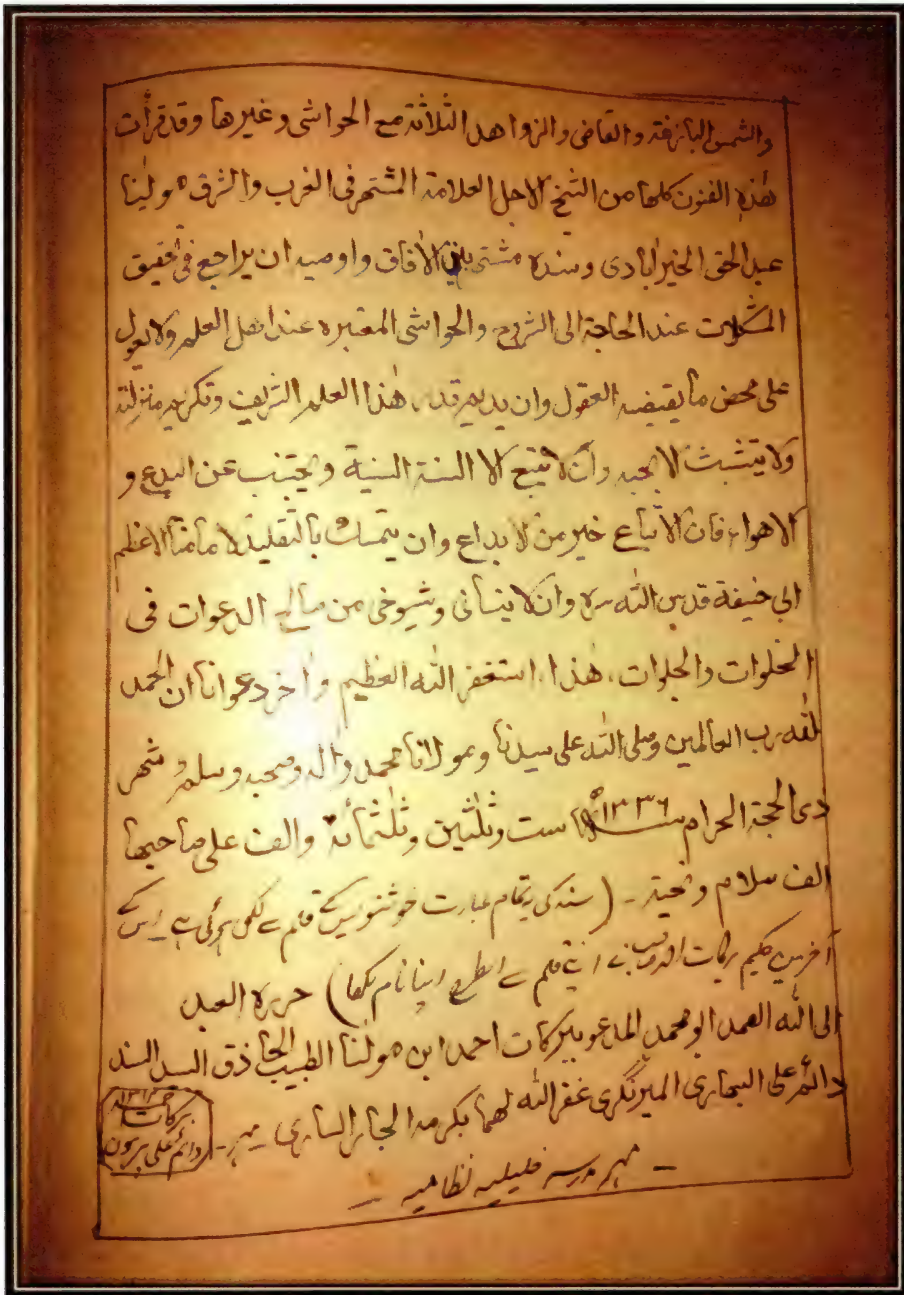 والشمس البازغة والقاضى والزواهد الثلاثة مع الحواشى وغيرها وقد قرأت
هٰذه الفنون كلها من الشيخ الاجل العلامة المشتهر فى الغرب والشرق مولٰينا
عبد الحق الخيرابادى وسنده مشتهر بين الاٰفاق واوصيه ان يراجع فى تحقيق
المشكلات عند الحاجة الى الشروح والحواشى المعتبره عند اهل العلم ولا يعول
على محض ما يقتضيه العقول وان يديم قدر هٰذا العلم الشريف وتكريم منزلته
ولا يتشبث الا بحبه وان لا يتبع الا السنة السنية ويجتنب عن البدع و
الاهواء فان الاتباع خير من الابداع وان يتمسك بالتقليد لامامنا الاعظم
ابى حنيفة قدس الله سره وان لا ينسانى وشيوخى من صالح الدعوات فى
الخلوات والجلوات، هٰذا، استغفر الله العظيم واٰخر دعوانا ان الحمد
لله رب العالمين وصلى الله على سيدنا ومولانا محمد واٰله وصحبه وسلم شهر
ذى الحجة الحرام سنه ١٣٣٦ه ست وثلٰثين وثلٰثمائة والف على صاحبها
الف سلام وتحية ـ (سند کی یہ تمام عبارت خوشنویس کے قلم سے لکھی ہوئی ہے اس کے
آخر میں حکیم برکات احمد صاحب نے اپنے قلم سے اسطرح اپنا نام لکھا) حرره العبد
الى الله الصمد ابو محمد المدعو ببركات احمد ابن مولٰنا الطبيب الحاذق السيد السند
دائم على البهارى الميرنگرى غفر الله لهما بكرمه الجارى السارى ـ مہر ـ
١٣١٣ بركات دائم على برسون
ـ مہر مدرسہ خلیلیہ نظامیہ ـ